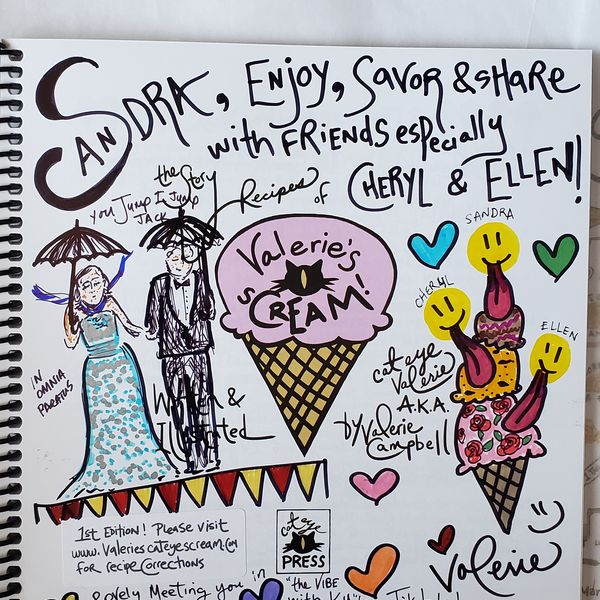 SANDRA, ENJOY, SAVOR & SHARE
with FRIENDS especially
CHERYL & ELLEN!
the Story
Recipes of
You Jump I Jump
JACK
Valerie's
sCREAM!
SANDRA
CHERYL
ELLEN
IN
OMNIA
PARATUS
cat eye
Valerie
A.K.A.
by Valerie
Campbell
Written &
Illustrated
1st Edition! Please visit
www.Valeriescateyescream.com
for recipe corrections
cat eye
PRESS
Valerie
Lovely Meeting you in
"the VIBE
with